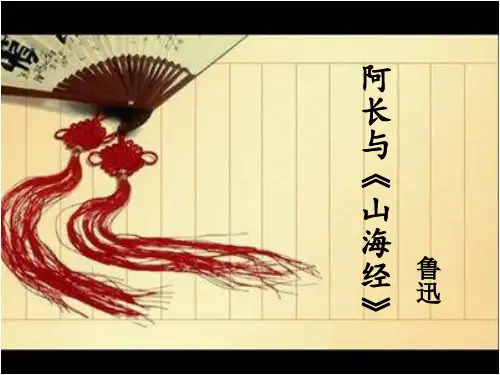 阿长与《山海经》
鲁迅